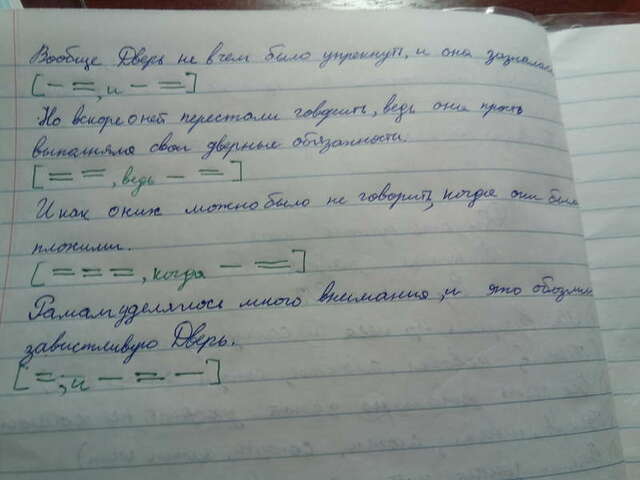 Вообще Дверь не в чем было упрекнуть, и она зазналась
[— =, и — =]
Но вскоре о ней перестали говорить, ведь она просто
выполняла свои дверные обязанности.
[= =, ведь — =]
И как о них можно было не говорить, когда они были
плохими.
[= = =, когда — =]
Рамам уделялось много внимания, и это обозлило
завистливую Дверь.
[= —, и — = —]